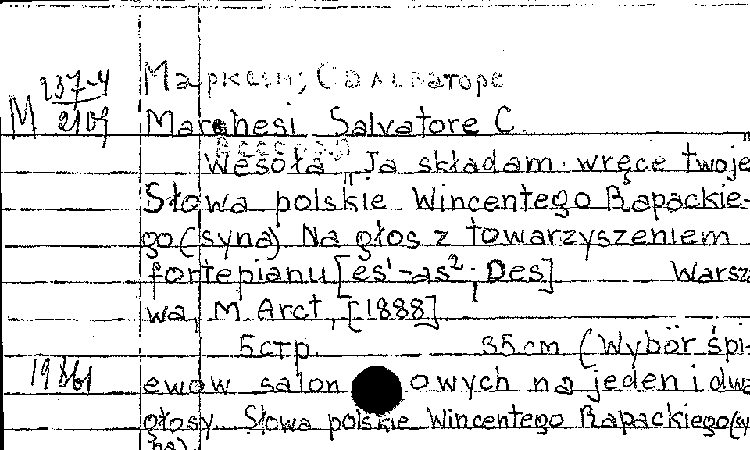 М 237-4
2109
Маркези, Сальваторе
Marchesi Salvatore C.
Wesoła "Ja składam wręce twoje"
Słowa polskie Wincentego Rapackie-
go (syna). Na głos z towarzyszeniem
fortepianu [es¹-as²; Des] Warsza
wa, M. Arct, [1888]
5 стр. 35 cm (Wybór śpi-
19361
ewów salonowych na jeden i dwa
głosy. Słowa polskie Wincentego Rapackiego (sy
na).